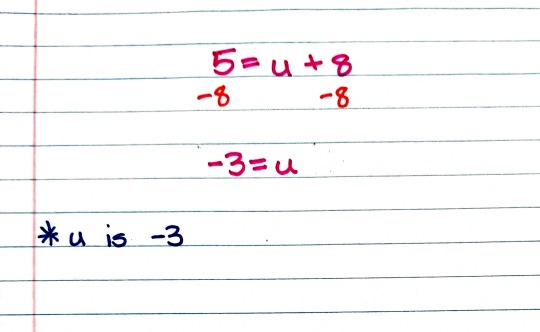 5 = u + 8
-8 -8
-3 = u
* u is -3